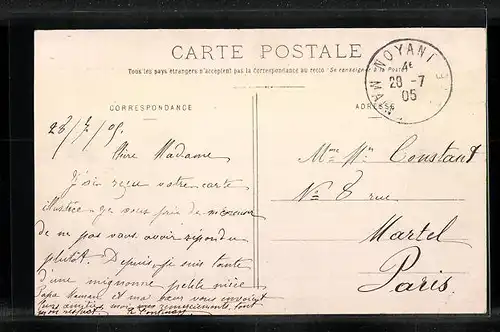 CARTE POSTALE
Tous les pays étrangers n'acceptent pas la Correspondance au recto - Se renseigner à la Poste
NOYANT
4E
28 -7
05
CORRESPONDANCE
ADRESSE
28/7/05
Chère Madame
J'ai reçu votre carte
illustrée je vous prie de m'excuser
de ne pas vous avoir répondu
plutôt. Depuis je suis tante
d'une mignonne petite nièce
Papa Maman et ma sœur vous envoient
leurs amitiés moi mes remerciements tout
mon respect.
Mme Constant
No 8 rue
Martel
Paris.